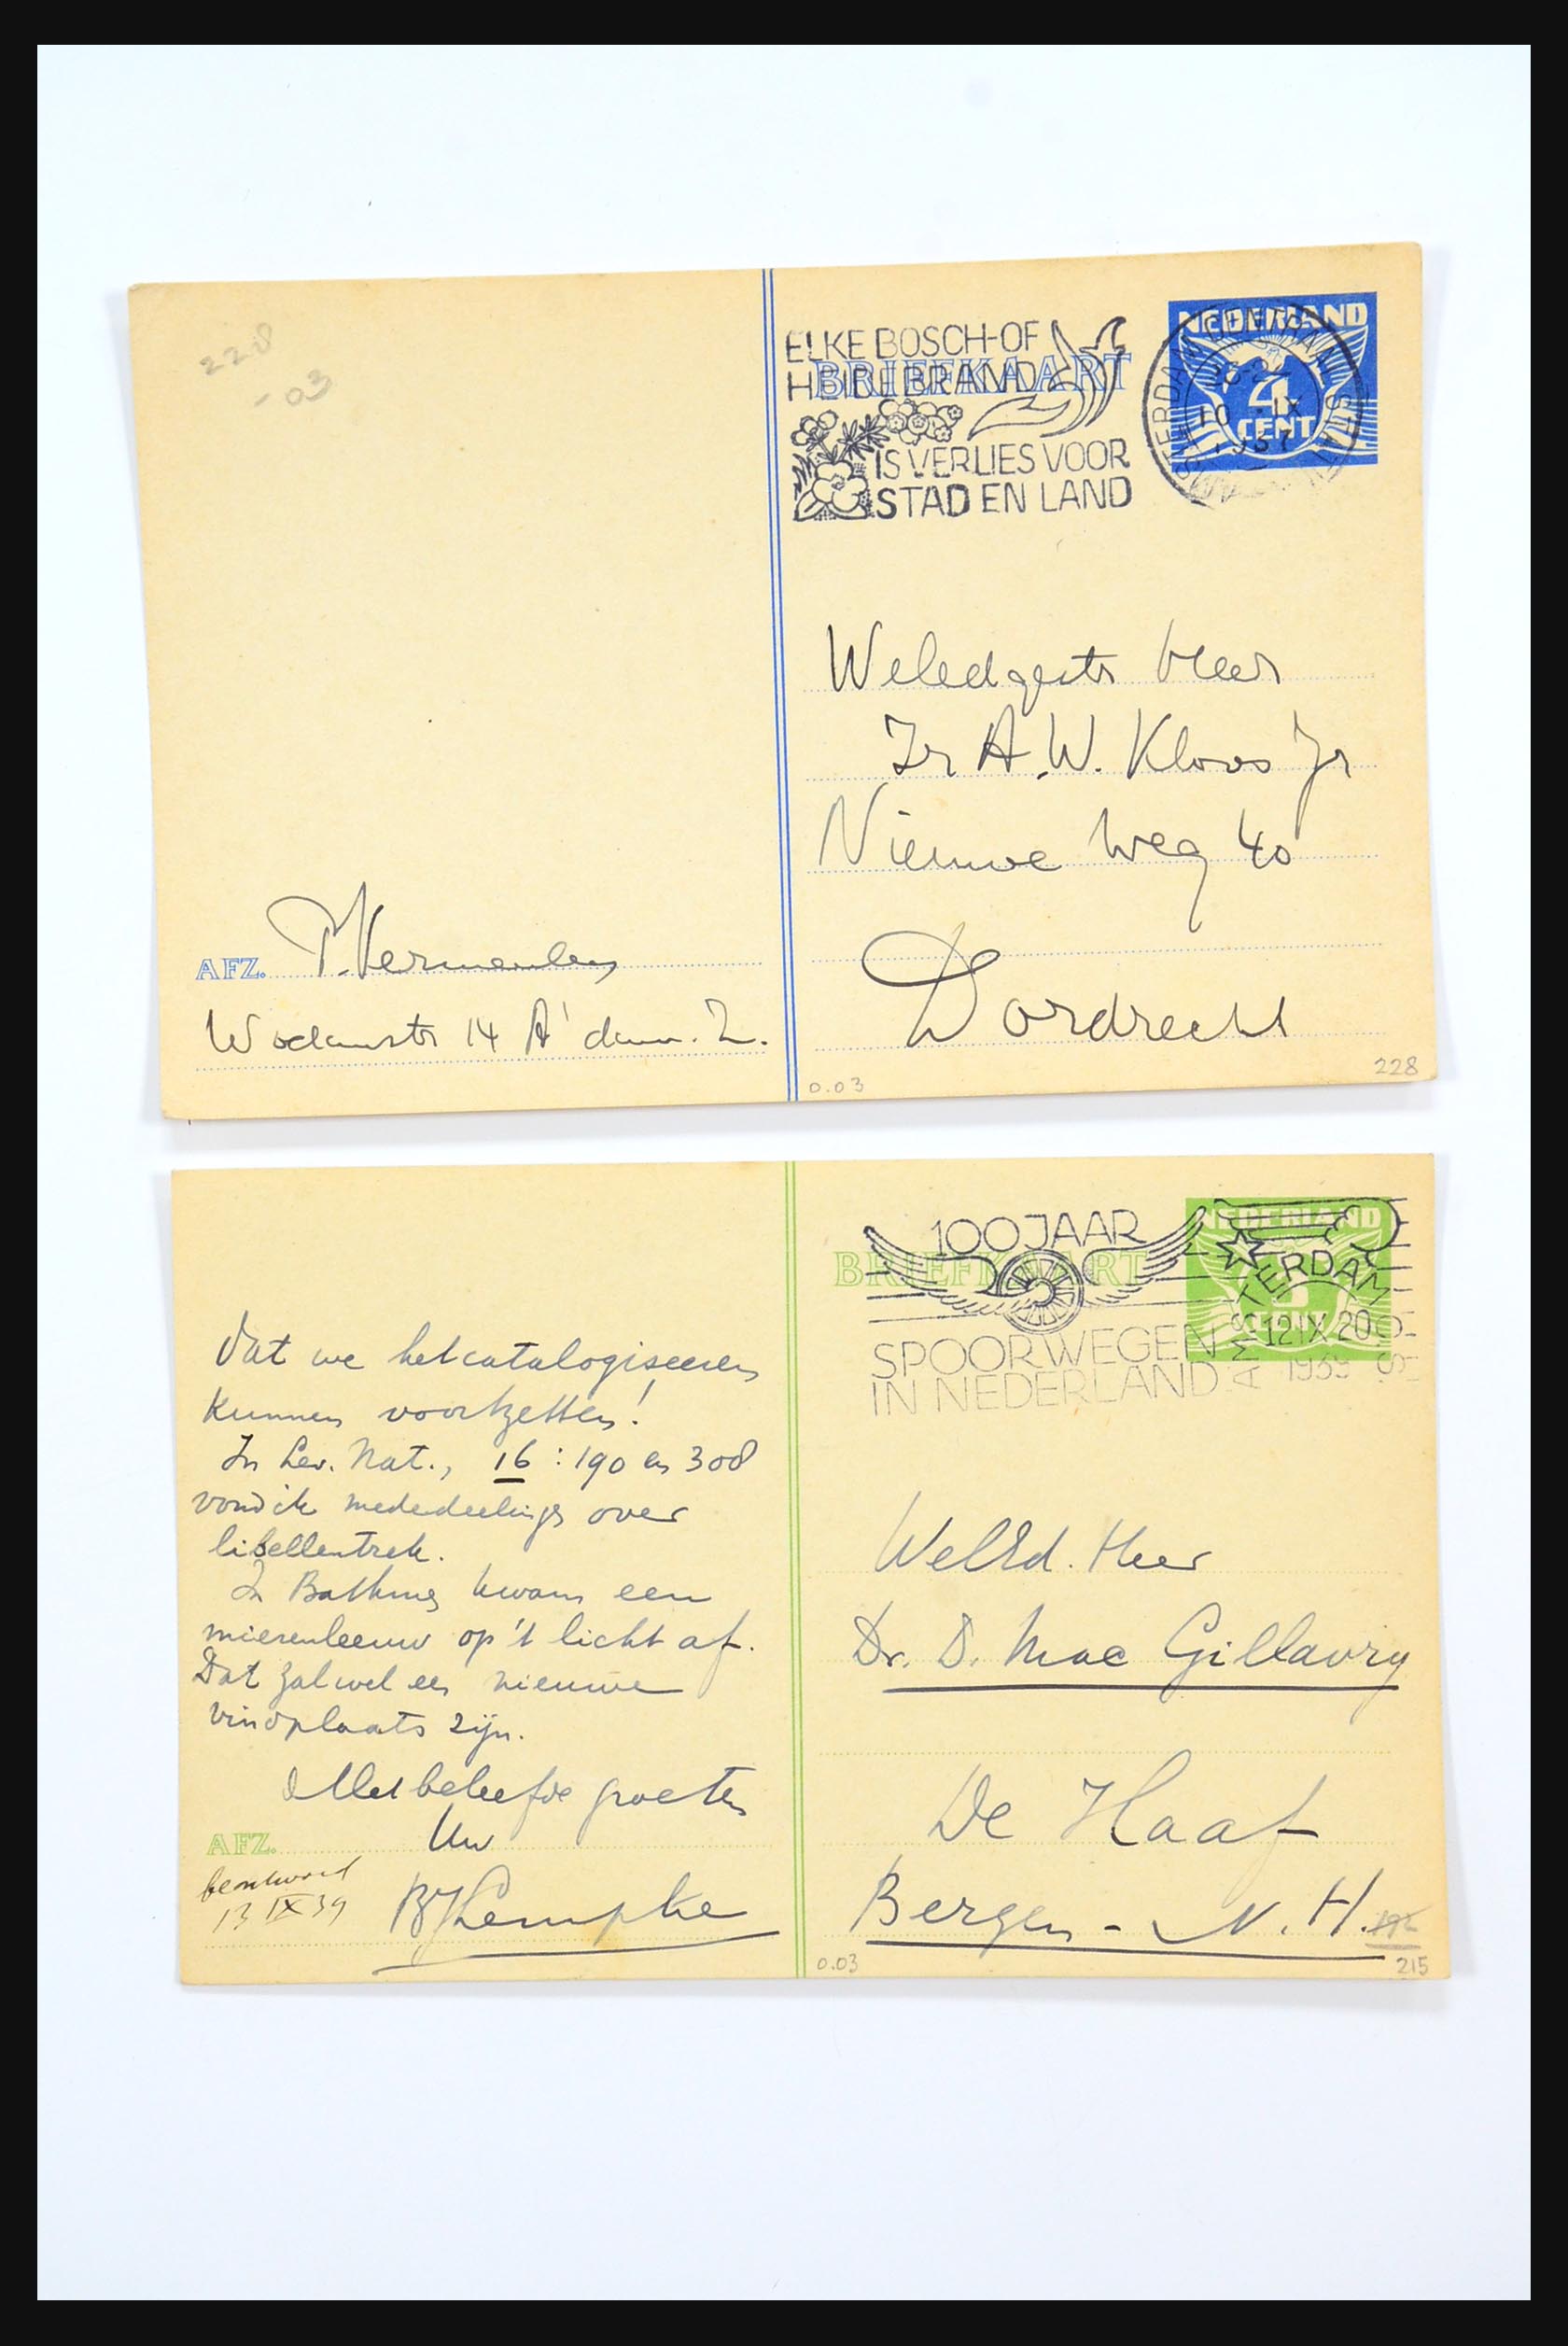 228
-03
ELKE BOSCH-OF
HEIDEBRAND
BRIEFKAART
IS VERLIES VOOR
STAD EN LAND
NEDERLAND
4
CENT
10 IX
1937
Weledgestr Heer
Ir A.W. Kloos Jr
Nieuwe Weg 40
Dordrecht
AFZ. P. Vermeulen
Wodanstr 14 A'dam. Z.
0.03
228
100 JAAR
BRIEFKAART
SPOORWEGEN
IN NEDERLAND
NEDERLAND
CENT
AMSTERDAM
12 IX 20
1939
Dat we het catalogiseeren
kunnen voortzetten!
In Lev. Nat., 16 : 190 en 308
vond ik mededeelingen over
libellentrek.
In Bathmen kwam een
mierenleeuw op 't licht af.
Dat zal wel een nieuwe
vindplaats zijn.
Met beleefde groeten
Uw
BJLempke
AFZ.
beantwoord
13 IX 39
WelEd. Heer
Dr. D. Mac Gillavry
De Haaf
Bergen - N.H.
0.03
215